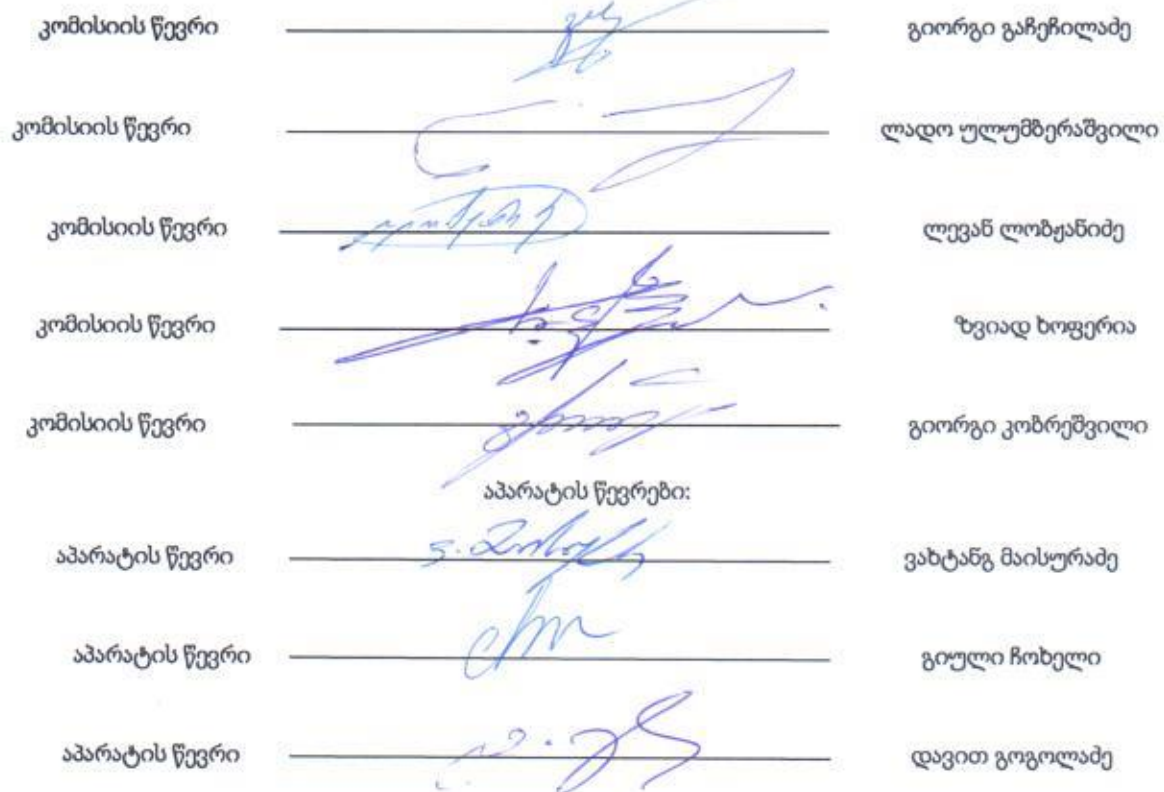 კომისიის წევრი გიორგი გაჩეჩილაძე
კომისიის წევრი ლადო ულუმბერაშვილი
კომისიის წევრი ლევან ლობჟანიძე
კომისიის წევრი ზვიად ხოფერია
კომისიის წევრი გიორგი კობრეშვილი
აპარატის წევრები:
აპარატის წევრი ვახტანგ მაისურაძე
აპარატის წევრი გიული ჩოხელი
აპარატის წევრი დავით გოგოლაძე